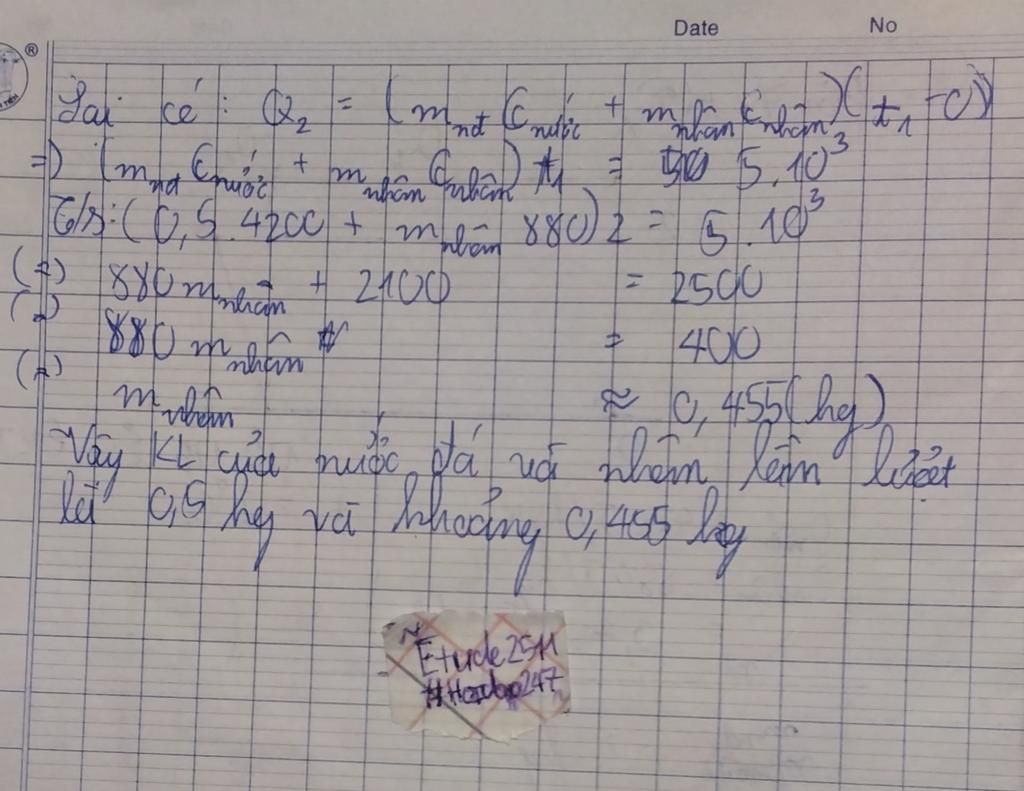 Date No
Lại có: Q₂ = (m_nđ C_nước + m_nhôm C_nhôm)(t₁ - 0)
=) (m_nđ C_nước + m_nhôm C_nhôm) t₁ = 5.10³
T/s: (0,5.4200 + m_nhôm 880) 2 = 5.10³
(=) 880 m_nhôm + 2100 = 2500
(=) 880 m_nhôm = 400
(=) m_nhôm ≈ 0,455 (kg)
Vậy KL của nước đá và nhôm lần lượt
là 0,5 kg và khoảng 0,455 kg
~Etude2511
#Hoidap247